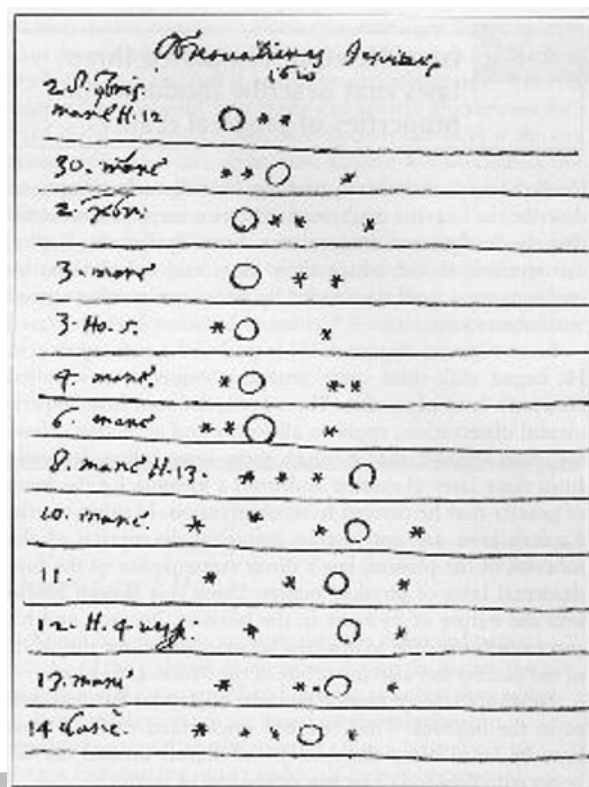 Observationes Jesuitarum
1610
2. S. 9bris.
mane H. 12
30. mane
2. Xbris.
3. mane
3. Ho. 5.
4. mane.
6 mane
8. mane H. 13.
10. mane
11.
12. H. 4.
17. mane
14